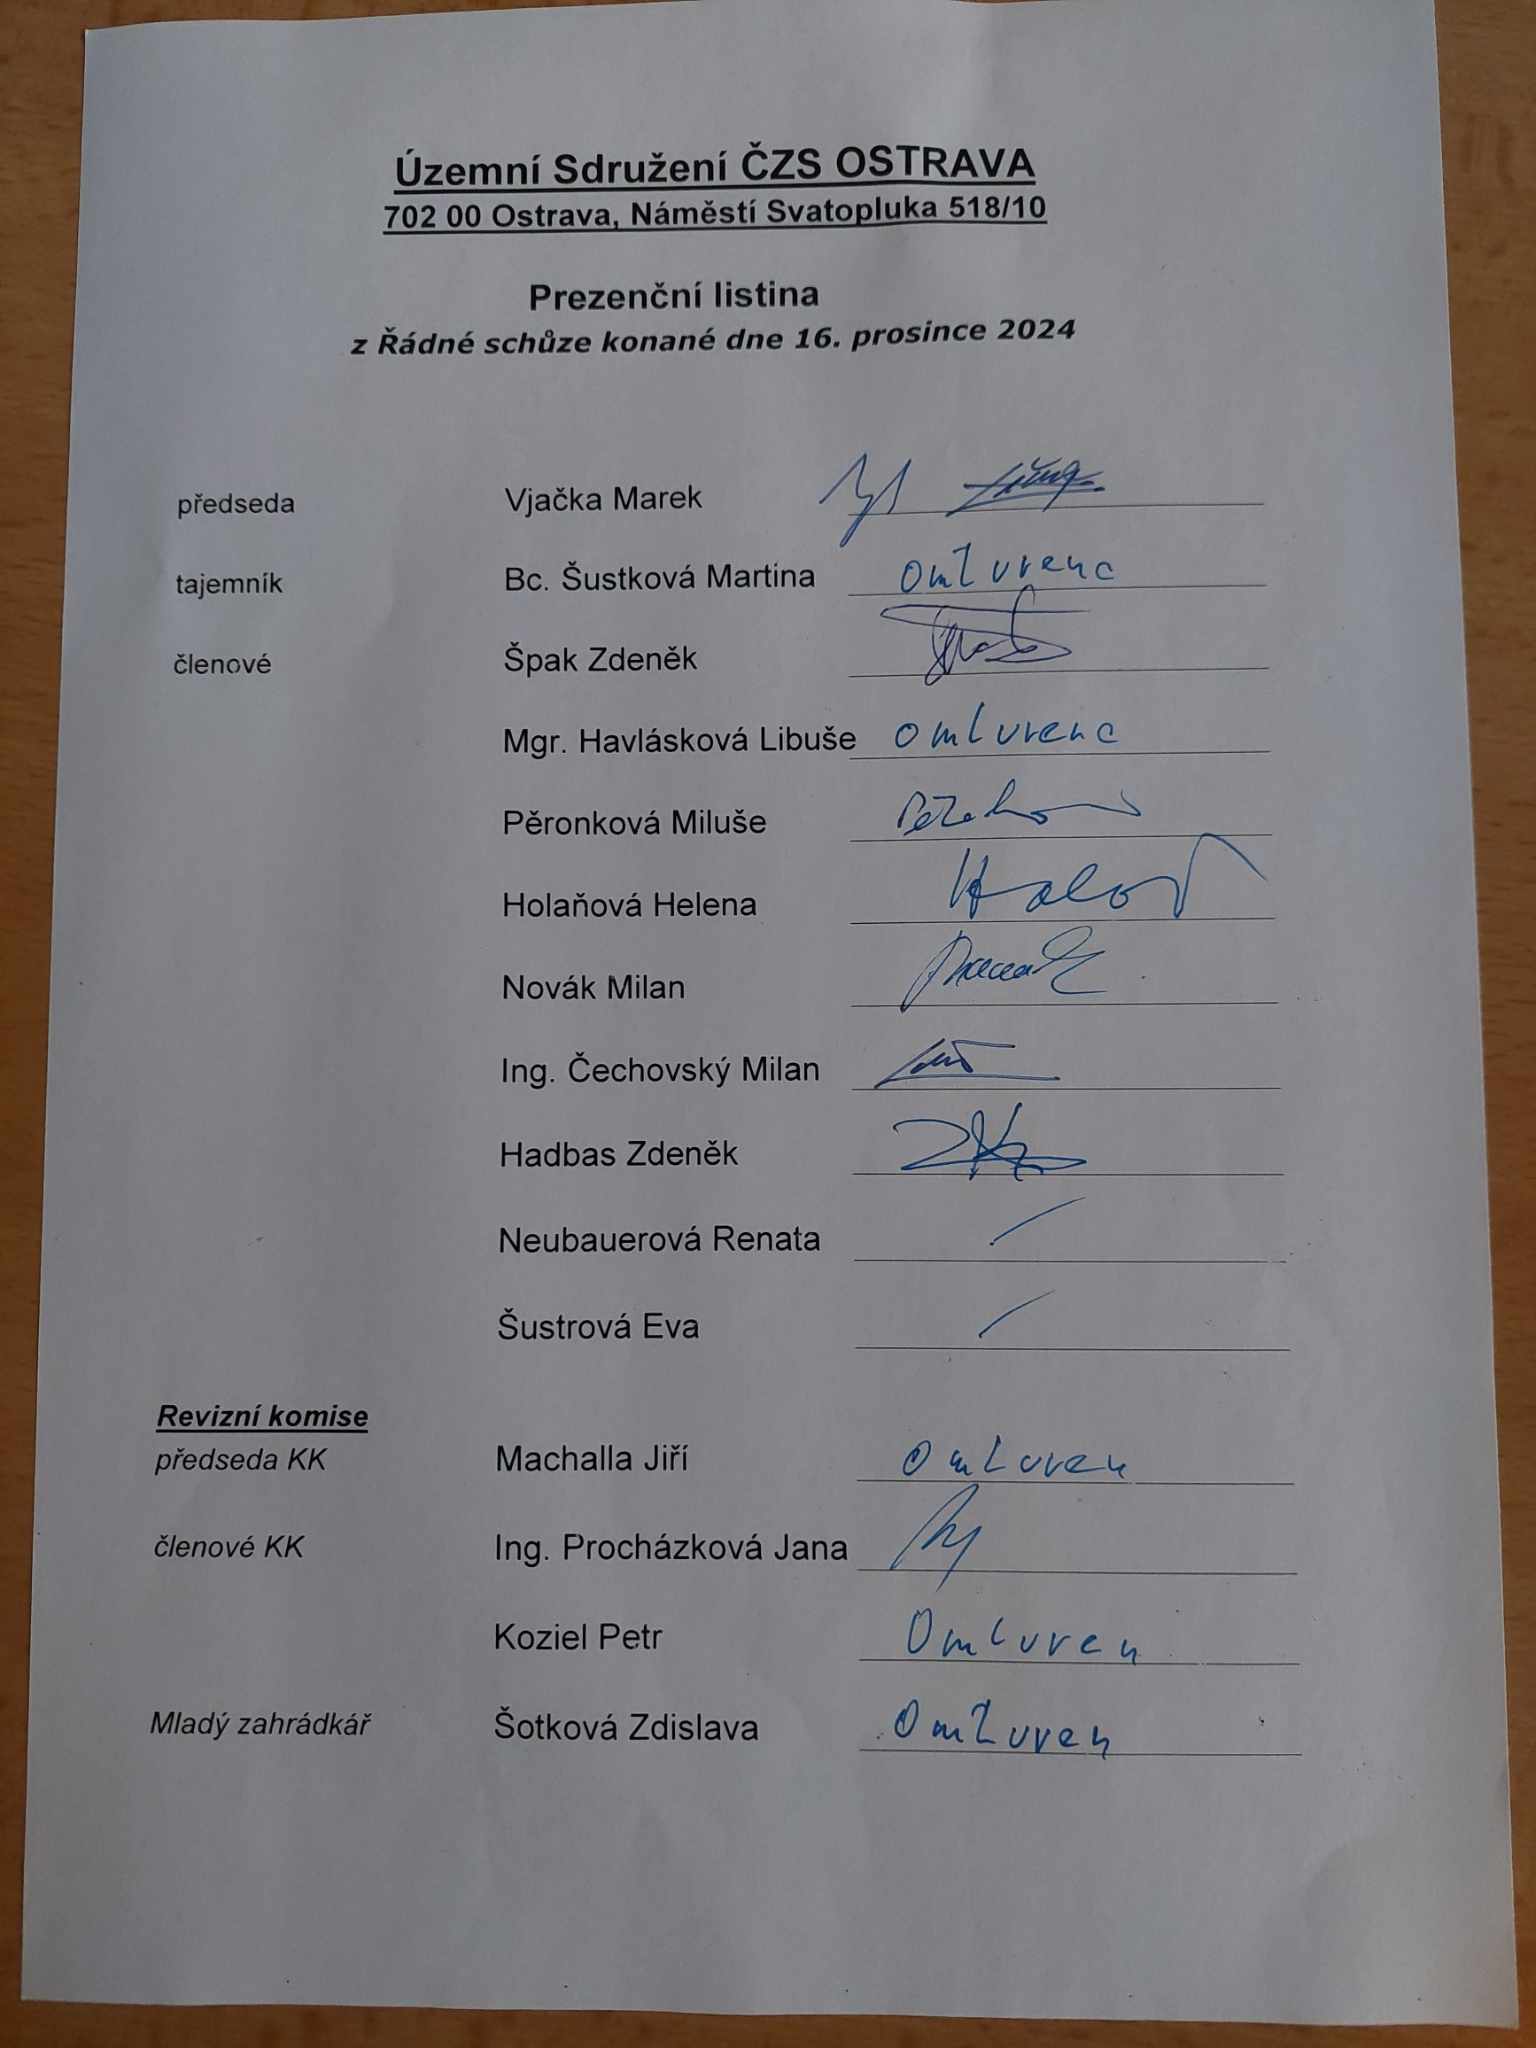 Územní Sdružení ČZS OSTRAVA
702 00 Ostrava, Náměstí Svatopluka 518/10
Prezenční listina
z Řádné schůze konané dne 16. prosince 2024
předseda Vjačka Marek
tajemník Bc. Šustková Martina omluvena
členové Špak Zdeněk
Mgr. Havlásková Libuše omluvena
Pěronková Miluše
Holaňová Helena
Novák Milan
Ing. Čechovský Milan
Hadbas Zdeněk
Neubauerová Renata
Šustrová Eva
Revizní komise
předseda KK Machalla Jiří omluven
členové KK Ing. Procházková Jana
Koziel Petr Omluven
Mladý zahrádkář Šotková Zdislava Omluven